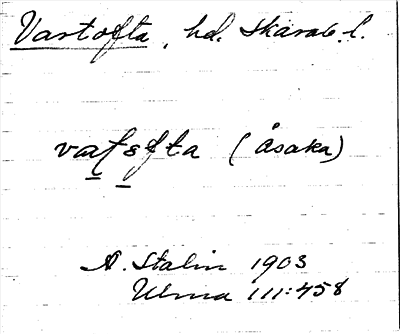 Vartofta, hd. Skarab. l.
(Åsaka)
A. Stalin 1903
Ulma 111:458